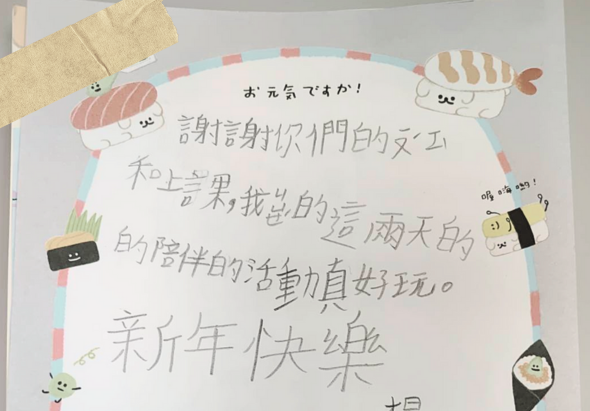 お元気ですか!
謝謝你們的
和上課,我的這兩天的
喔嗨喲!
的陪伴的活動真好玩。
新年快樂